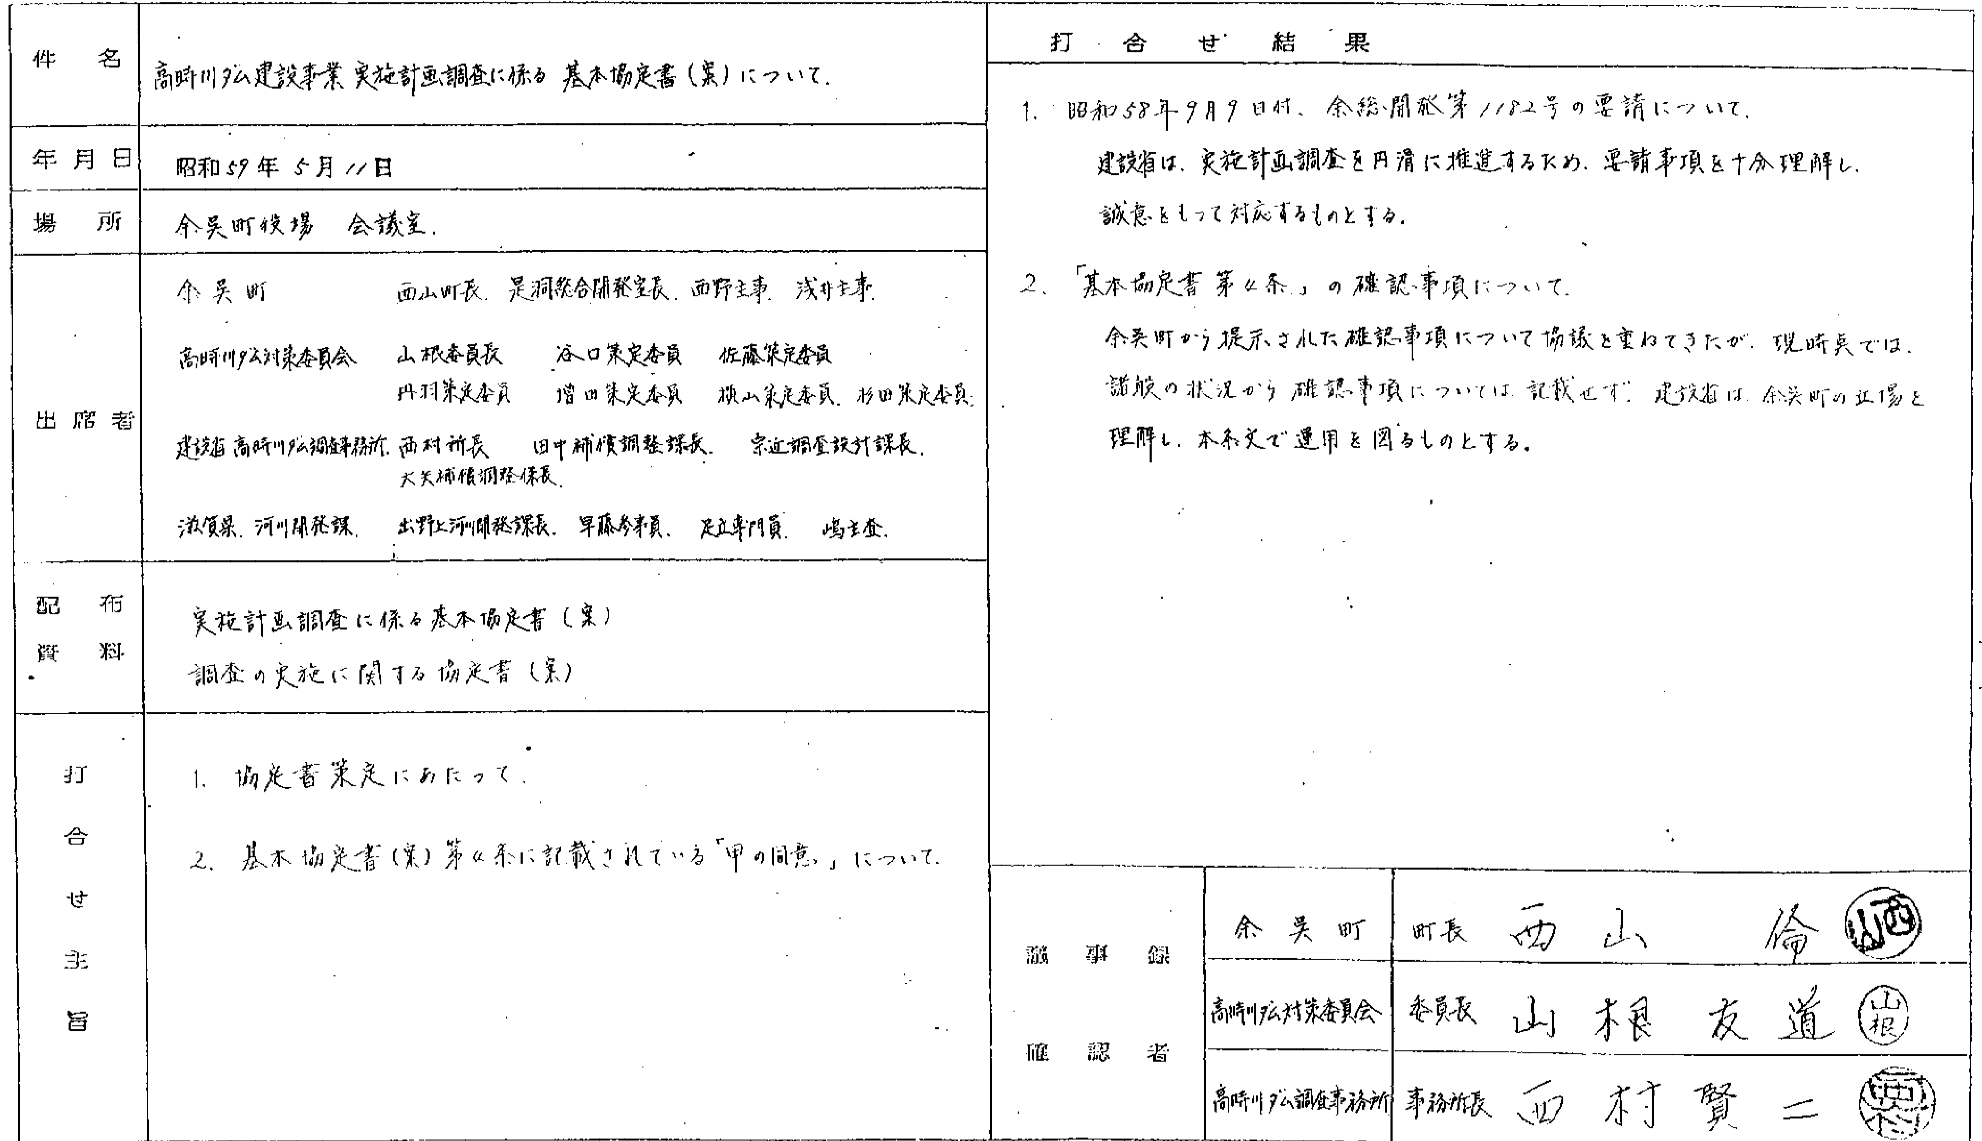 件名
高時川ダム建設事業実施計画調査に係る 基本協定書(案)について.
年月日
昭和59年 5月11日
場所
余呉町役場 会議室.
出席者
余呉町 西山町長. 是洞総合開発室長. 西野主事. 浅井主事.
高時川ダム対策委員会 山根委員長 谷口策定委員 佐藤策定委員
丹羽策定委員 増田策定委員 横山策定委員. 杉田策定委員.
建設省高時川ダム調査事務所. 西村所長 田中補償調整課長. 宗近調査設計課長.
大矢補償調整係長.
滋賀県. 河川開発課. 出野上河川開発課長. 早藤参事員. 足立専門員. 嶋主査.
配布
資料
実施計画調査に係る基本協定書(案)
調査の実施に関する協定書(案)
打合せ主旨
1. 協定書策定にあたって.
2. 基本協定書(案)第4条に記載されている「甲の同意」について.
打合せ結果
1. 昭和58年9月9日付、余総開発第1182号の要請について.
建設省は、実施計画調査を円滑に推進するため、要請事項を十分理解し、
誠意をもって対応するものとする。
2. 「基本協定書第4条」の確認事項について.
余呉町から提示された確認事項について協議を重ねてきたが、現時点では、
諸般の状況から確認事項については記載せず、建設省は余呉町の立場を
理解し、本条文で運用を図るものとする。
議事録
確認者
余呉町 町長 西山 倫 西山
高時川ダム対策委員会 委員長 山根友道 山根
高時川ダム調査事務所 事務所長 西村賢二